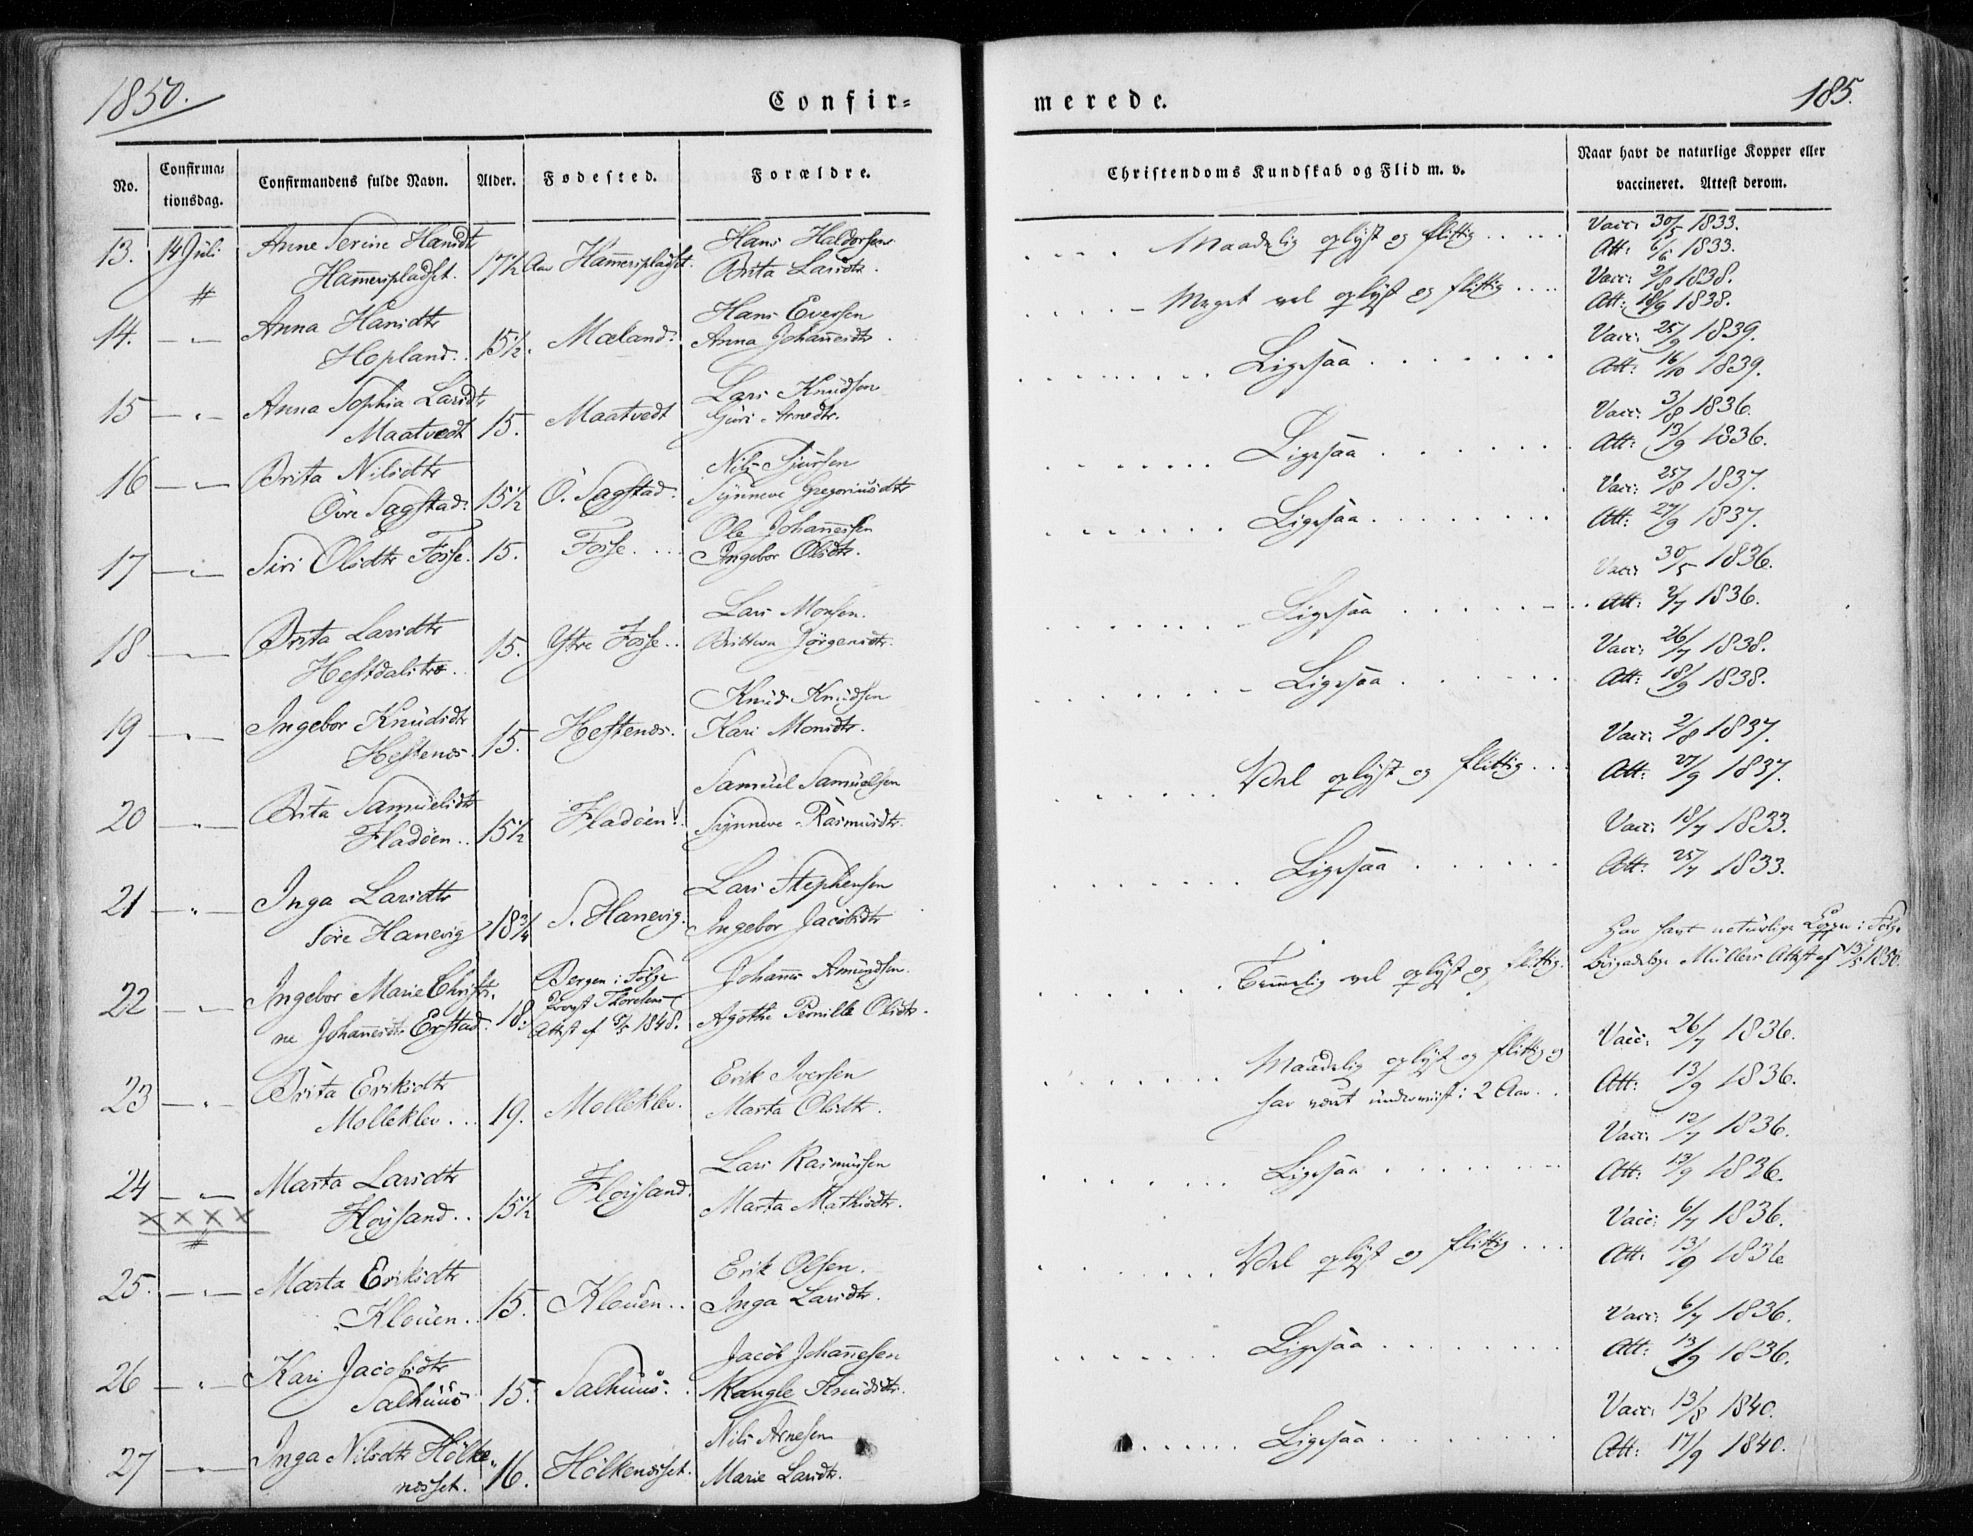 1850.
Confir-
merede.
185.
No.
Confirma-
tionsdag.
Confirmandens fulde Navn.
Alder.
Fødested.
Forældre.
Christendoms Kundskab og Flid m. v.
Naar havt de naturlige Kopper eller
vaccineret. Attest derom.
13. 14 Juli Anne Serine Hansdtr
Hameripladset. 17 1/2 Aar Hameripladset.
Hans Haldorsen
Brita Larsdtr.
Maadelig oplyst og flittig
Vacc: 30/5 1833.
Att: 6/6 1833.
#
14. Anna Hansdtr
Hopland. 15 1/2. Mæland.
Hans Eversen
Anna Johannesdtr.
Meget vel oplyst og flittig
Vacc: 2/8 1838.
Att: 18/9 1838.
15 Anna Sophia Larsdtr
Maatvedt 15. Maatvedt
Lars Knudsen
Guri Arnedtr.
Ligesaa
Vacc: 25/9 1839.
Att: 16/10 1839.
16 Brita Nilsdtr
Övre Sagstad. 15 1/2 Ö. Sagstad.
Nils Sjursen
Synneve Gregoriusdtr
Ligesaa
Vacc: 3/8 1836.
Att: 13/9 1836.
17 Siri Olsdtr Fosse. 15. Fosse
Ole Johannessen
Ingebor Olsdtr.
Ligesaa
Vacc: 25/8 1837.
Att: 27/9 1837.
18 Brita Larsdtr
Hestdalitre. 15. Ytre Fosse
Lars Monsen.
Britteva Jörgensdtr.
Ligesaa
Vacc: 30/5 1836.
Att: 2/7 1836.
19 Ingebor Knudsdtr
Hestenes. 15. Hestenes.
Knud Knudsen
Kari Monsdtr.
Ligesaa
Vacc: 26/7 1838.
Att: 18/9 1838.
20 Brita Samuelsdtr
Fladöen 15 1/2 Fladöen
Samuel Samuelsen
Synneve Rasmusdtr.
Vel oplyst og flittig
Vacc: 2/8 1837.
Att: 27/9 1837.
21 Inga Larsdtr
Söre Hanevig 18 3/4 S. Hanevig.
Lars Stephensen
Ingebor Jacobsdtr
Ligesaa
Vacc: 18/7 1833.
Att: 25/7 1833.
22 Ingebor Marie Christi-
ne Johannesdtr Erstad. 18. Bergen i Følge
Provst Thoresens
Attest af 8/5 1848.
Johannes Amundsen.
Agothe Pernille Olsdtr.
Temmelig vel oplyst og flittig.
Har havt naturlige Kopper i Følge
Brigadelæge Müllers Attest af 13/5 1850.
23 Brita Eriksdtr
Molleklev 19. Molleklev.
Erik Iversen
Marta Olsdtr.
Maadelig oplyst og flittig og
har været underviist i 2 Aar.
Vacc: 26/7 1836.
Att: 13/9 1836.
24 Marta Larsdtr
Floysand 15 1/2 Floysand.
Lars Rasmussen
Marta Mathisdtr.
Ligesaa
Vacc: 12/7 1836.
Att: 13/9 1836.
XXXX
#
25. Marta Eriksdtr
Klouen. 15. Klouen
Erik Olsen.
Inga Larsdtr.
Vel oplyst og flittig
Vacc: 6/7 1836.
Att: 13/9 1836
26 Kari Jacobsdtr
Salhuus 15. Salhuus.
Jacob Johannesen
Rangle Knudsdtr.
Ligesaa
Vacc: 6/7 1836.
Att: 13/9 1836.
27 Inga Nilsdtr Hölke-
nesset. 16. Hölkenesset.
Nils Arnesen
Marie Larsdtr.
Ligesaa
Vacc: 13/8 1840.
Att: 17/9 1840.